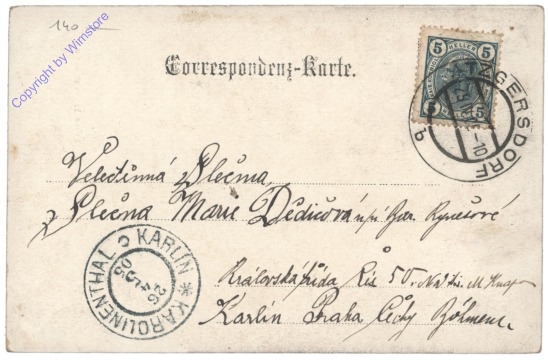 140
Copyright by Wimstore
Correspondenz-Karte.
5 HELLER 5
5 5
ATZGERSDORF
b
Velectěnná Slečna,
Slečna Marie Dědičová
Královská třída čís 50.
Karlín Praha Čechy Böhmen.
KARLÍN * KAROLINENTHAL
26
05